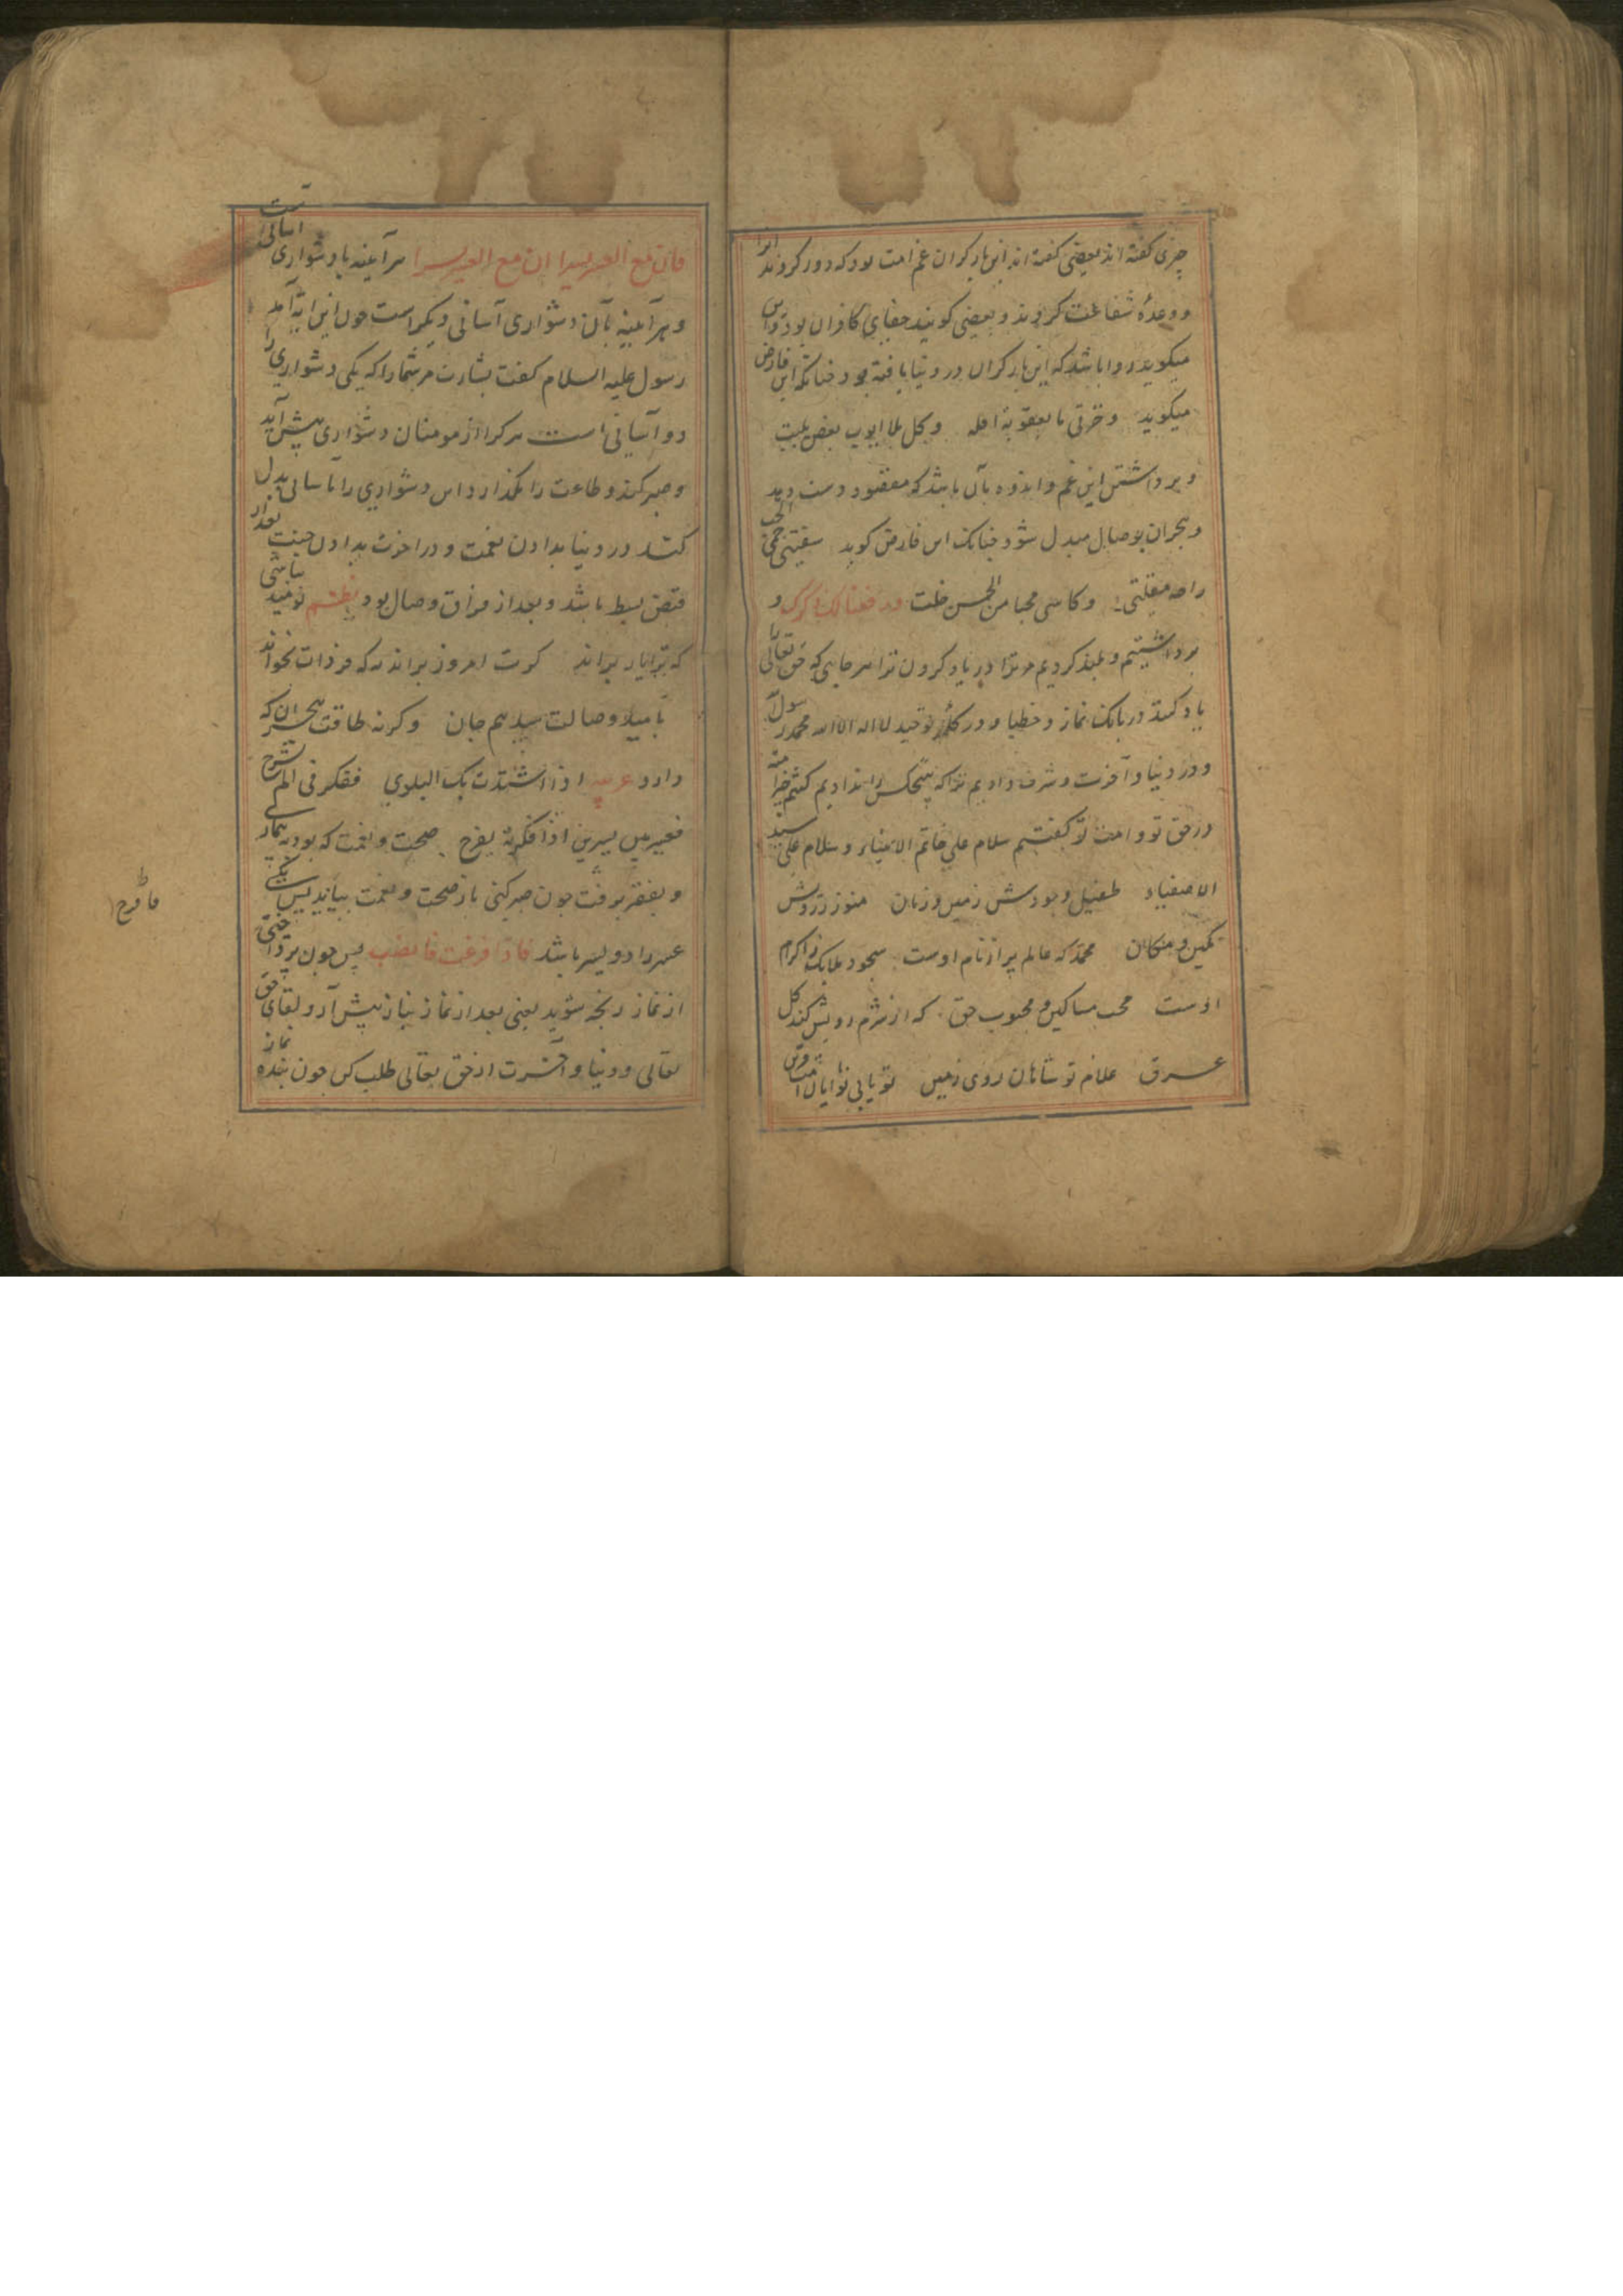 چیزی گفته اند بعضی گفته اند این بار گران غم امت بود که دور کردند انرا
و وعدهٔ شفاعت کردند و بعضی گویند جفای کافران بود
میکوید روا باشد که این بار گران در دنیا یافته بود چنانکه ابن فارض
میکوید و حزنی ما یعقوب اقله و کل بلا ایوب بعض بلیتی
و برداشتن این غم و اندوه بآن باشد که مقصود دست دهد
و هجران بوصال مبدل شود چنانک ابن فارض کوید سقتنی حمیا الحب
راحه مقلتی و کاسی محیا من عن الحسن جلت ورفعنا لک ذکرک و
برداشتیم و بلند کردیم مر ترا در یاد کردن ترا هر جایی که حق تعالی را
یاد کنند در بانک نماز و خطبا و در کلمهٔ توحید لا اله الا الله محمد رسول الله
و در دنیا و آخرت و شرف دادیم ترا که هیچکس را ندادیم
در حق تو و امت تو کفتیم سلام علی خاتم الانبیاء و سلام علی سید
الاصفیاء طفیل وجودش زمین و زمان منور ز رویش
مکین و مکان محمد که عالم پر از نام اوست سجود ملایک ز اکرام
اوست محب مساکین و محبوب حق که از شرم رویش کند کل
عرق غلام تو شاهان روی زمین
فان مع العسر یسرا ان مع العسر یسرا هر آینه با دشواری آسانی است
و هر آینه بآن دشواری آسانی دیکر است چون این آیه آمد
رسول علیه السلام کفت بشارت مر شمارا که یکی دشواری را
دو آسانی است هر کرا از مومنان دشواری پیش آید
و صبر کند و طاعت را نکذارد این دشواری را بآسانی بدل
کنند در دنیا بدادن نعمت و در اخرت بدادن جنت بعد از
قبض بسط باشد و بعد از فراق وصال بود نظم نومید نباشی
که ترا یار براند کرت امروز براند نه که فردات نخواند
بامید وصالت میدهم جان و کرنه طاقت هجران که
دارد عربیه اذا اشتدت بک البلوی ففکر فی الم نشرح
فعسر بین یسرین اذا فکرته یفرح صحت و نعمت که بود به بیماری
و بفقر برفت چون صبر کنی باز صحت و نعمت بیاید پس یک
عسر را دو یسر باشد فاذا فرغت فانصب پس چون پرداختی
از نماز رنجه شوید یعنی بعد از نماز نیاز پیش آر و لقای حق
تعالی و دنیا و آخرت از حق تعالی طلب کن چون بنده نماز